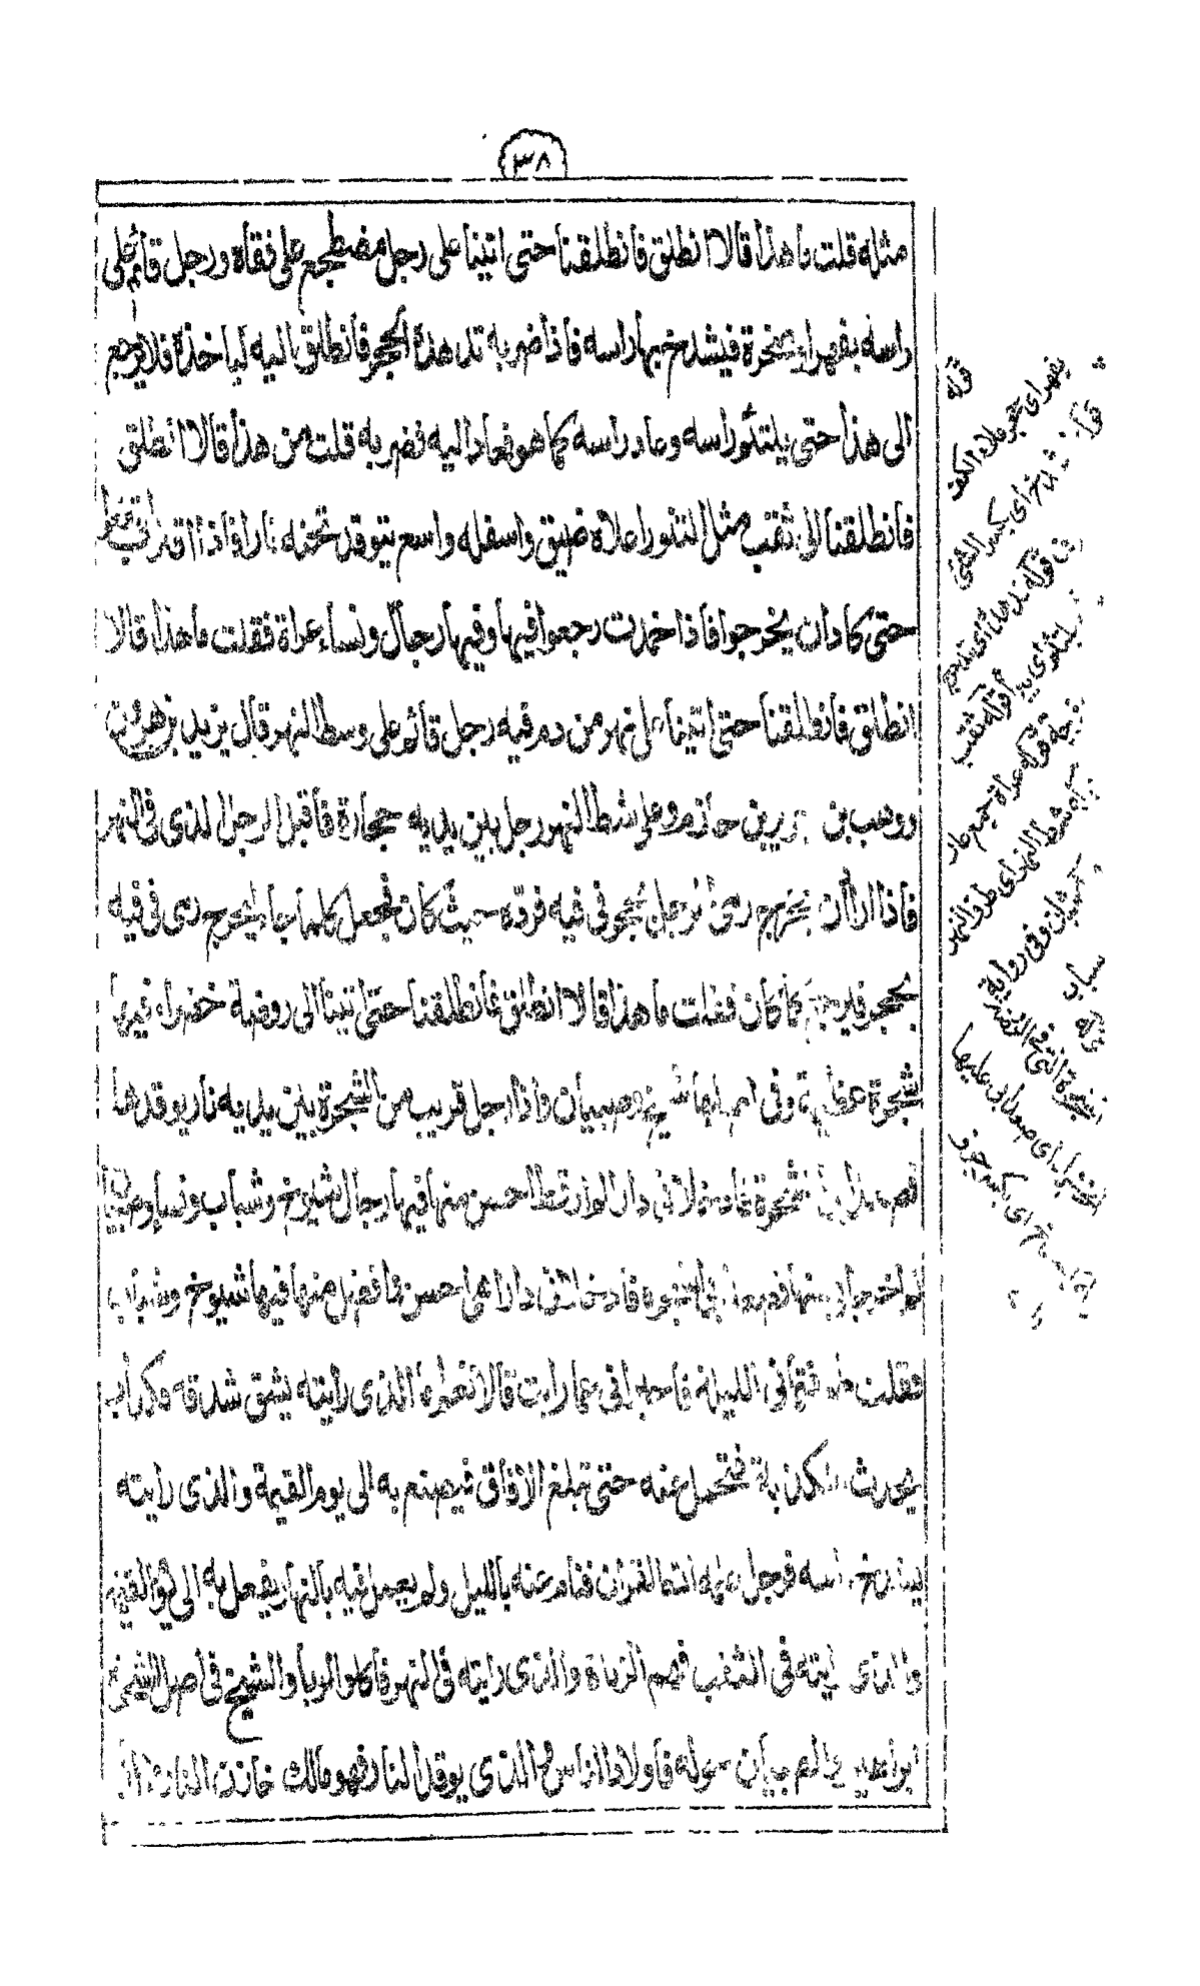 ٣٨
مثله قلت ما هذا قالا انطلق فانطلقنا حتى اتينا على رجل مضطجع على قفاه ورجل قائم على
راسه بفهر او صخرة فيشدخ بها راسه فاذا ضربه تدهده الحجر فانطلق اليه ليأخذه فلا يرجع
الى هذا حتى يلتئم راسه وعاد راسه كما هو فعاد اليه فضربه قلت من هذا قالا انطلق
فانطلقنا الى ثقب مثل التنور اعلاه ضيق واسفله واسع يتوقد تحته نارا فاذا اقترب ارتفعوا
حتى كادان يخرجوا فاذا خمدت رجعوا فيها وفيها رجال ونساء عراة فقلت ما هذا قالا
انطلق فانطلقنا حتى اتينا على نهر من دم فيه رجل قائم على وسط النهر قال يزيد بن هرون
ووهب بن جرير بن حازم وعلى شط النهر رجل بين يديه حجارة فاقبل الرجل الذى فى النهر
فاذا اراد ان يخرج رمى الرجل بحجر فى فيه فرده حيث كان فجعل كلما جاء ليخرج رمى فى فيه
بحجر فيرجع كما كان فقلت ما هذا قالا انطلق فانطلقنا حتى اتينا الى روضة خضراء فيها
شجرة عظيمة وفى اصلها شيخ وصبيان واذا رجل قريب من الشجرة بين يديه نار يوقدها
فصعدا بى الشجرة فادخلانى دارا لم ار قط احسن منها فيها رجال شيوخ وشباب ونساء وصبيان
ثم اخرجانى منها فصعدا بى الشجرة فادخلانى دارا هى احسن وافضل منها فيها شيوخ وشباب
فقلت طوفتمانى الليلة فاخبرانى عما رايت قالا نعم اما الذى رايته يشق شدقه فكذاب
يحدث بالكذبة فتحمل عنه حتى تبلغ الآفاق فيصنع به الى يوم القيمة والذى رايته
يشدخ راسه فرجل علمه الله القرآن فنام عنه بالليل ولم يعمل فيه بالنهار يفعل به الى يوم القيمة
والذى رايته فى الثقب فهم الزناة والذى رايته فى النهر فآكلوا الربا والشيخ فى اصل الشجرة
ابراهيم والصبيان حوله فاولاد الناس والذى يوقد النار فهو مالك خازن النار
قوله
بفهر اى حجر ملاء الكف
اى بكسر الشئ
قوله ثقب
قوله عراة جمع عار
قوله شط النهر اى طرف النهر
وفى رواية